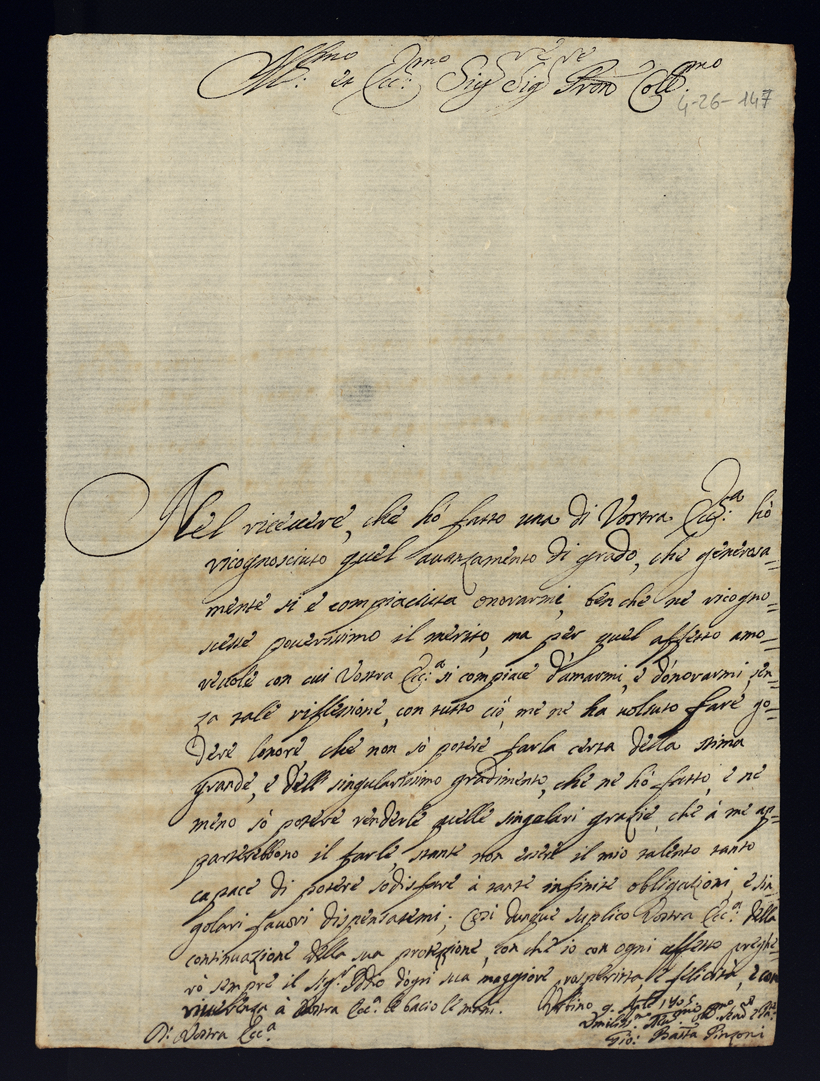 Ill.mo et Ecc.mo Sig.re Sig.re Pron Coll.mo
4-26-147
Nel riceuere, che hò fatto una di Vostra Ecc.a hò
ricognosciuto quel auanzamento di grado, che generosa=
mente si è compiaciuta onorarmi, ben che ne ricogno=
scesse pouerissimo il merito, ma per quel affetto amo=
reuole con cui Vostra Ecc.a si compiace d'amarmi, e d'onorarmi, sen=
za tale riflessione, con tutto ciò, me ne ha uoluto fare go=
dere lonore che non sò potere farla certa della stima
grande, e dell singularissimo gradimento, che ne hò fatto, e ne
meno sò potere renderle quelle singolari grazie, che à me as=
parterebbono il farle, stante non essere il mio talento tanto
capace di potere sodisfare à tante infinite obligazioni, e sin=
golari fauori dispensatemi; Così dunque suplico Vostra Ecc.a della
continuazione della sua protezzione, con che io con ogni affetto preghe=
rò sempre il Sig.r Iddio d'ogni sua maggiore prosperità, e felicità, e con
riuerenza à Vostra Ecc.a le bacio le mani. Urbino 9
Di Vostra Ecc.a
Gio: Batta